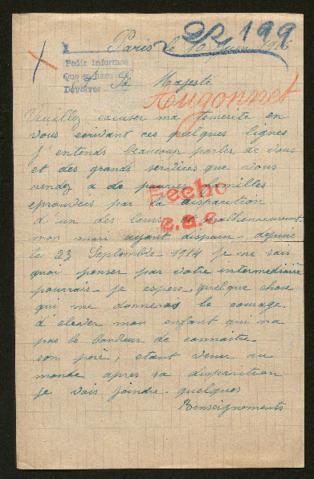 199
Paris le 10 1916
Pedir informes
Sa Majesté
Hugonnet
Veuillez excuser ma temerite en
vous ecrivant ces quelques lignes
J'entends beaucoup parler de vous
et des grands services que vous
rendez a de pauvres familles
eprouvées par la disparition
d'un des leurs malheureusement
Hecho
mon mari ayant disparu depuis
le 23 Septembre 1914 je ne sais
quoi penser par votre intermediaire
pourrais je espere quelque chose
qui me donnerai le courage
d'elever mon enfant qui n'a
pas le bonheur de connaitre
son père, etant venu au
monde après sa disparition
je vais joindre quelques
Renseignements